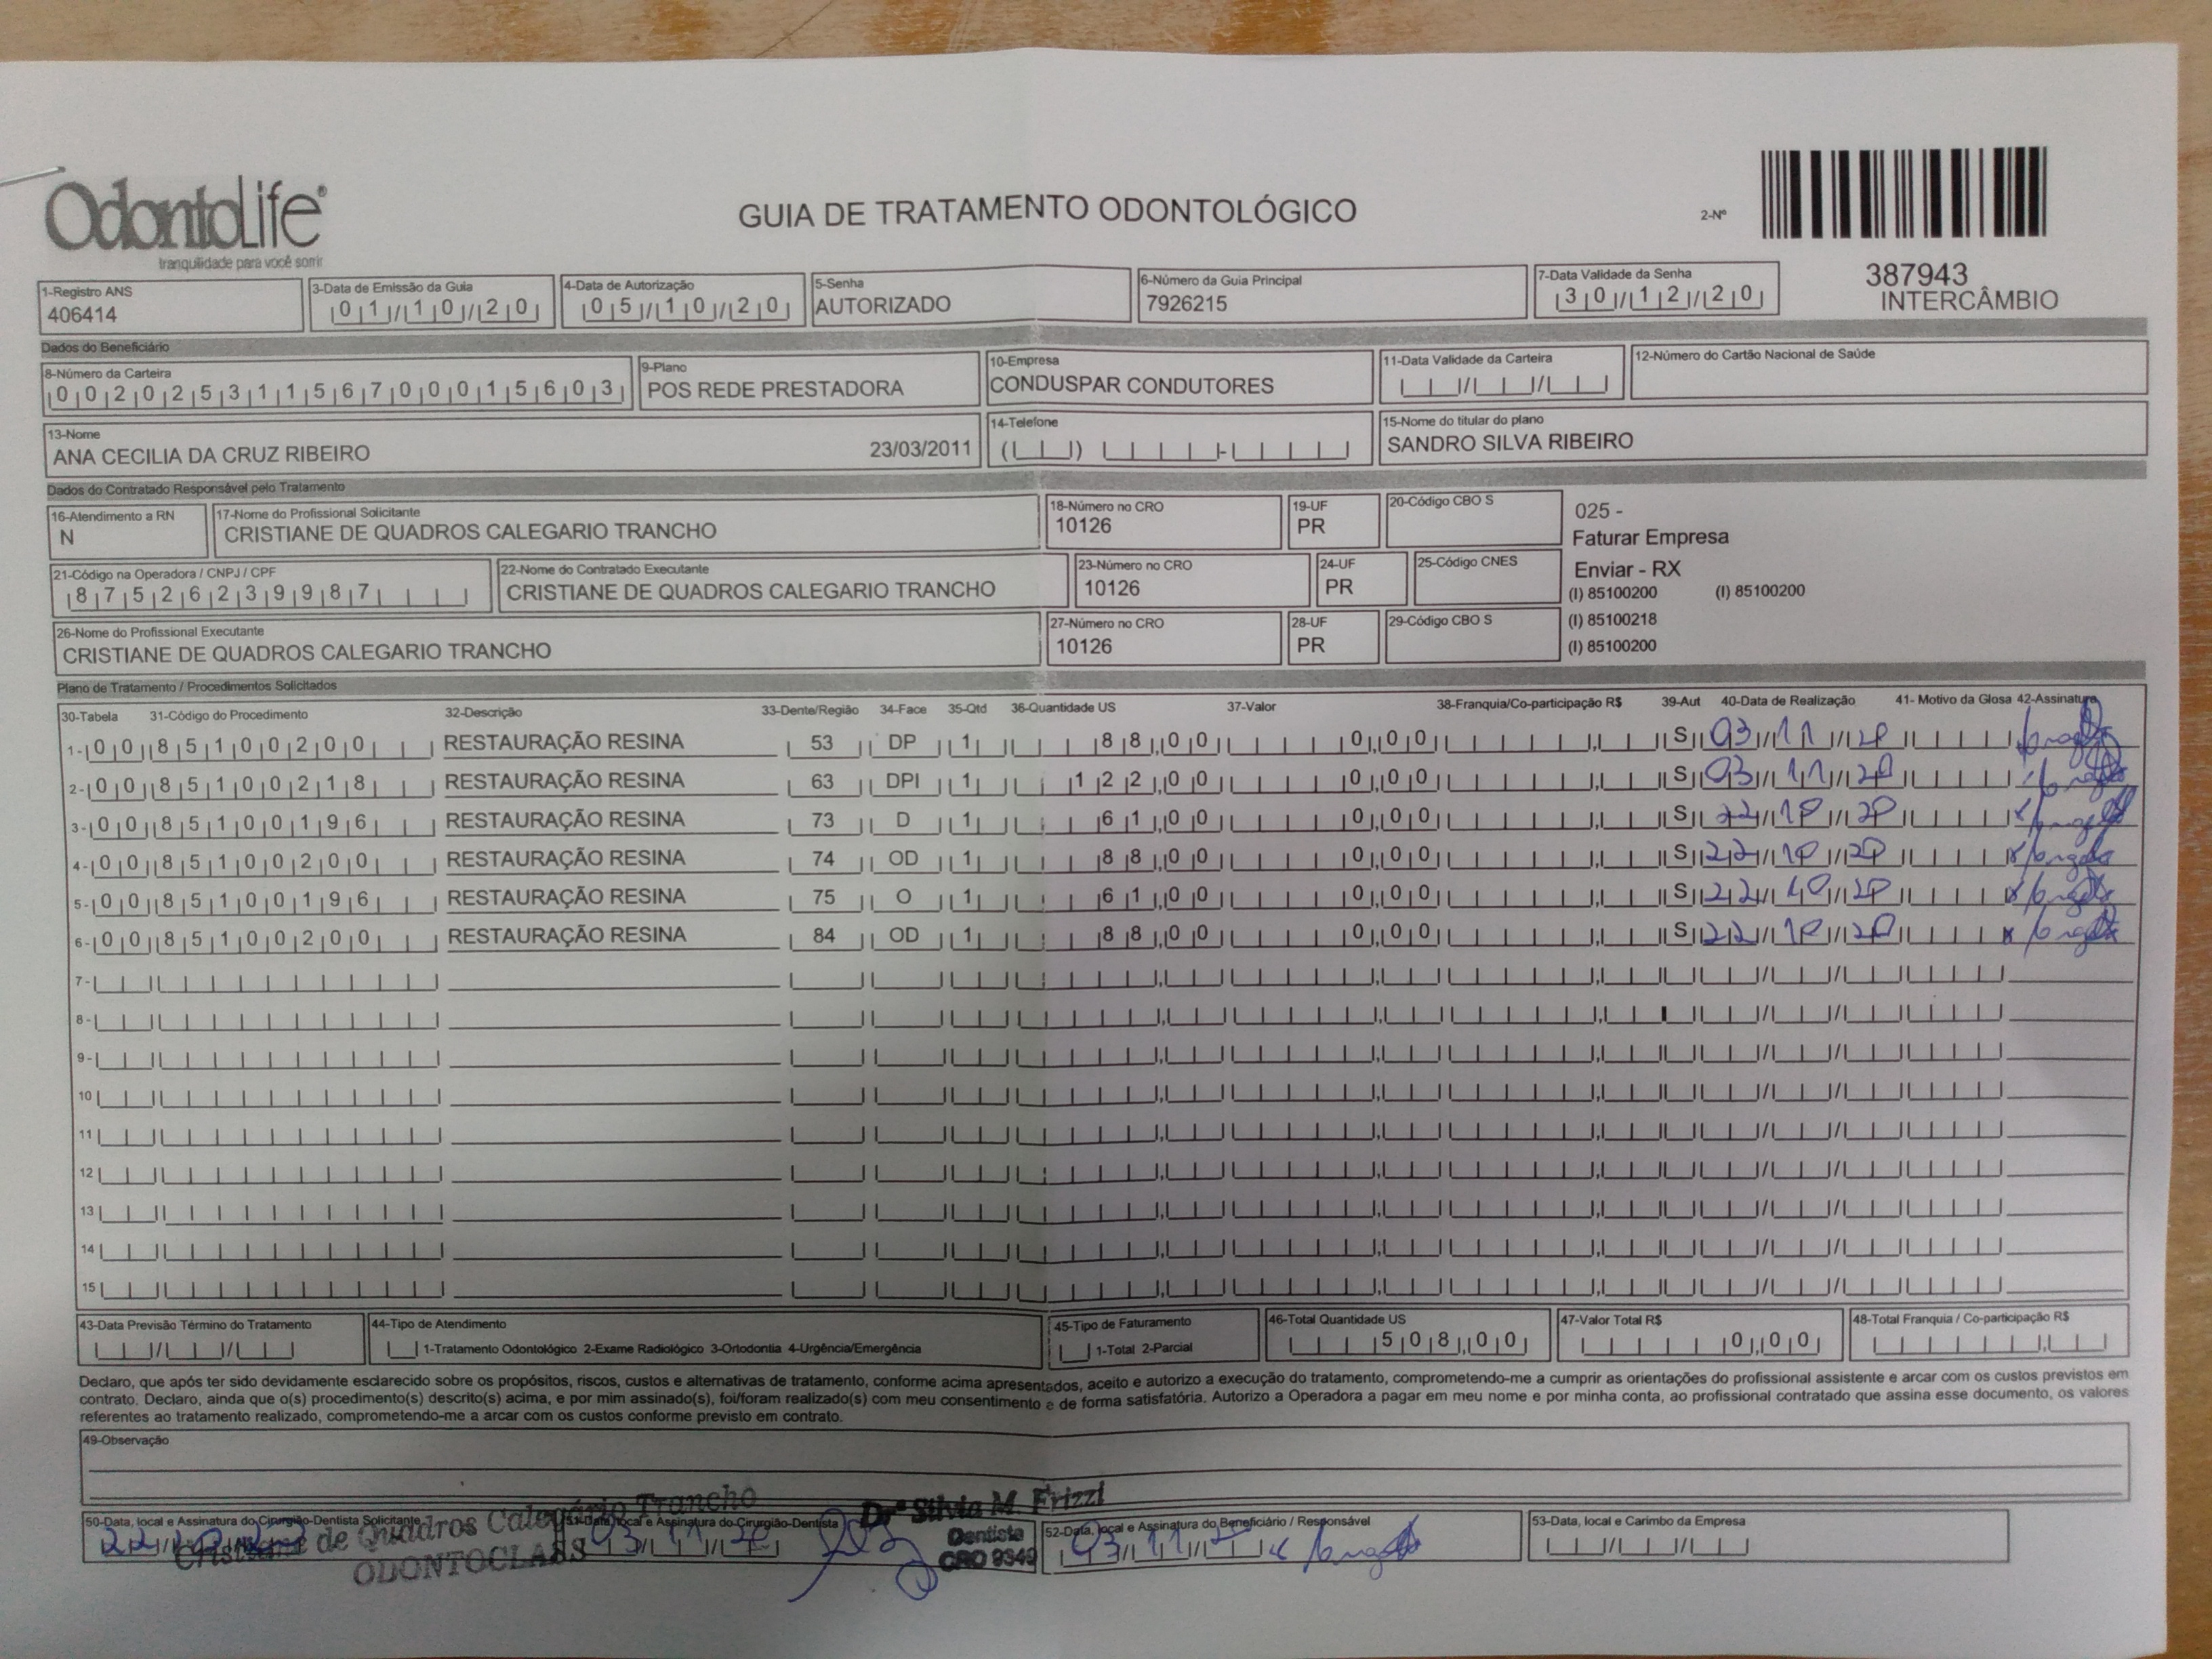 OdontoLife®
tranquilidade para você sorrir
GUIA DE TRATAMENTO ODONTOLÓGICO
2-Nº
387943
INTERCÂMBIO
1-Registro ANS
406414
3-Data de Emissão da Guia
01/10/20
4-Data de Autorização
05/10/20
5-Senha
AUTORIZADO
6-Número da Guia Principal
7926215
7-Data Validade da Senha
30/12/20
Dados do Beneficiário
8-Número da Carteira
00202531156700015603
9-Plano
POS REDE PRESTADORA
10-Empresa
CONDUSPAR CONDUTORES
11-Data Validade da Carteira
12-Número do Cartão Nacional de Saúde
13-Nome
ANA CECILIA DA CRUZ RIBEIRO 23/03/2011
14-Telefone
15-Nome do titular do plano
SANDRO SILVA RIBEIRO
Dados do Contratado Responsável pelo Tratamento
16-Atendimento a RN
N
17-Nome do Profissional Solicitante
CRISTIANE DE QUADROS CALEGARIO TRANCHO
18-Número no CRO
10126
19-UF
PR
20-Código CBO S
025 -
Faturar Empresa
Enviar - RX
(I) 85100200 (I) 85100200
(I) 85100218
(I) 85100200
21-Código na Operadora / CNPJ / CPF
87526239987
22-Nome do Contratado Executante
CRISTIANE DE QUADROS CALEGARIO TRANCHO
23-Número no CRO
10126
24-UF
PR
25-Código CNES
26-Nome do Profissional Executante
CRISTIANE DE QUADROS CALEGARIO TRANCHO
27-Número no CRO
10126
28-UF
PR
29-Código CBO S
Plano de Tratamento / Procedimentos Solicitados
30-Tabela 31-Código do Procedimento 32-Descrição 33-Dente/Região 34-Face 35-Qtd 36-Quantidade US 37-Valor 38-Franquia/Co-participação R$ 39-Aut 40-Data de Realização 41- Motivo da Glosa 42-Assinatura
1- 00 85100200 RESTAURAÇÃO RESINA 53 DP 1 88,00 0,00 S 03/11/20
2- 00 85100218 RESTAURAÇÃO RESINA 63 DPI 1 122,00 0,00 S 03/11/20
3- 00 85100196 RESTAURAÇÃO RESINA 73 D 1 61,00 0,00 S 22/10/20
4- 00 85100200 RESTAURAÇÃO RESINA 74 OD 1 88,00 0,00 S 22/10/20
5- 00 85100196 RESTAURAÇÃO RESINA 75 O 1 61,00 0,00 S 22/10/20
6- 00 85100200 RESTAURAÇÃO RESINA 84 OD 1 88,00 0,00 S 22/10/20
7-
8-
9-
10
11
12
13
14
15
43-Data Previsão Término do Tratamento
44-Tipo de Atendimento
1-Tratamento Odontológico 2-Exame Radiológico 3-Ortodontia 4-Urgência/Emergência
45-Tipo de Faturamento
1-Total 2-Parcial
46-Total Quantidade US
508,00
47-Valor Total R$
0,00
48-Total Franquia / Co-participação R$
Declaro, que após ter sido devidamente esclarecido sobre os propósitos, riscos, custos e alternativas de tratamento, conforme acima apresentados, aceito e autorizo a execução do tratamento, comprometendo-me a cumprir as orientações do profissional assistente e arcar com os custos previstos em
contrato. Declaro, ainda que o(s) procedimento(s) descrito(s) acima, e por mim assinado(s), foi/foram realizado(s) com meu consentimento e de forma satisfatória. Autorizo a Operadora a pagar em meu nome e por minha conta, ao profissional contratado que assina esse documento, os valores
referentes ao tratamento realizado, comprometendo-me a arcar com os custos conforme previsto em contrato.
49-Observação
50-Data, local e Assinatura do Cirurgião-Dentista Solicitante
Cristiane de Quadros Calegário Trancho
ODONTOCLASS
51-Data, local e Assinatura do Cirurgião-Dentista
03/11/20
Drª Silvia M. Frizzi
Dentista
CRO 9349
52-Data, local e Assinatura do Beneficiário / Responsável
03/11/20
53-Data, local e Carimbo da Empresa